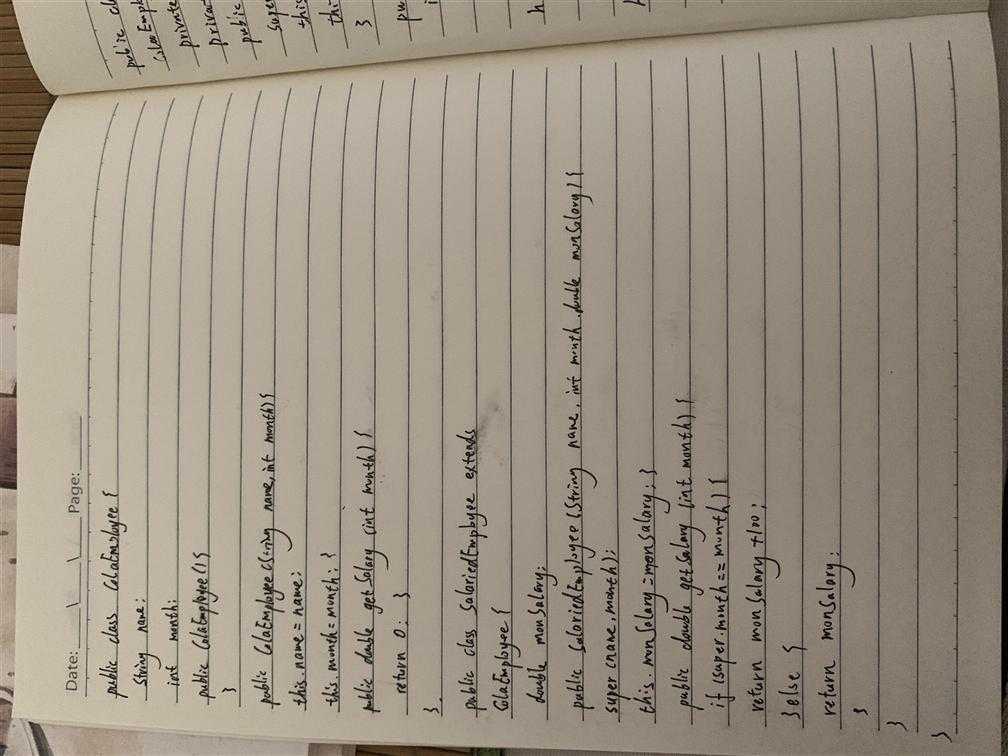 Date: \ \ Page:
public class ColaEmployee {
String name;
int month;
public ColaEmployee(){
}
public ColaEmployee(String name, int month){
this.name = name;
this.month = month; }
public double getSalary (int month) {
return 0; }
}
public class SalariedEmployee extends
ColaEmployee {
double monSalary;
public SalariedEmployee (String name, int month, double monSalary) {
super (name, month);
this.monSalary = monSalary; }
public double getSalary (int month) {
if (super.month == month) {
return monSalary +100;
} else {
return monSalary;
}
}
}
public
ColaEmpl
private
privat
public
super
this
thi
}
pu
i